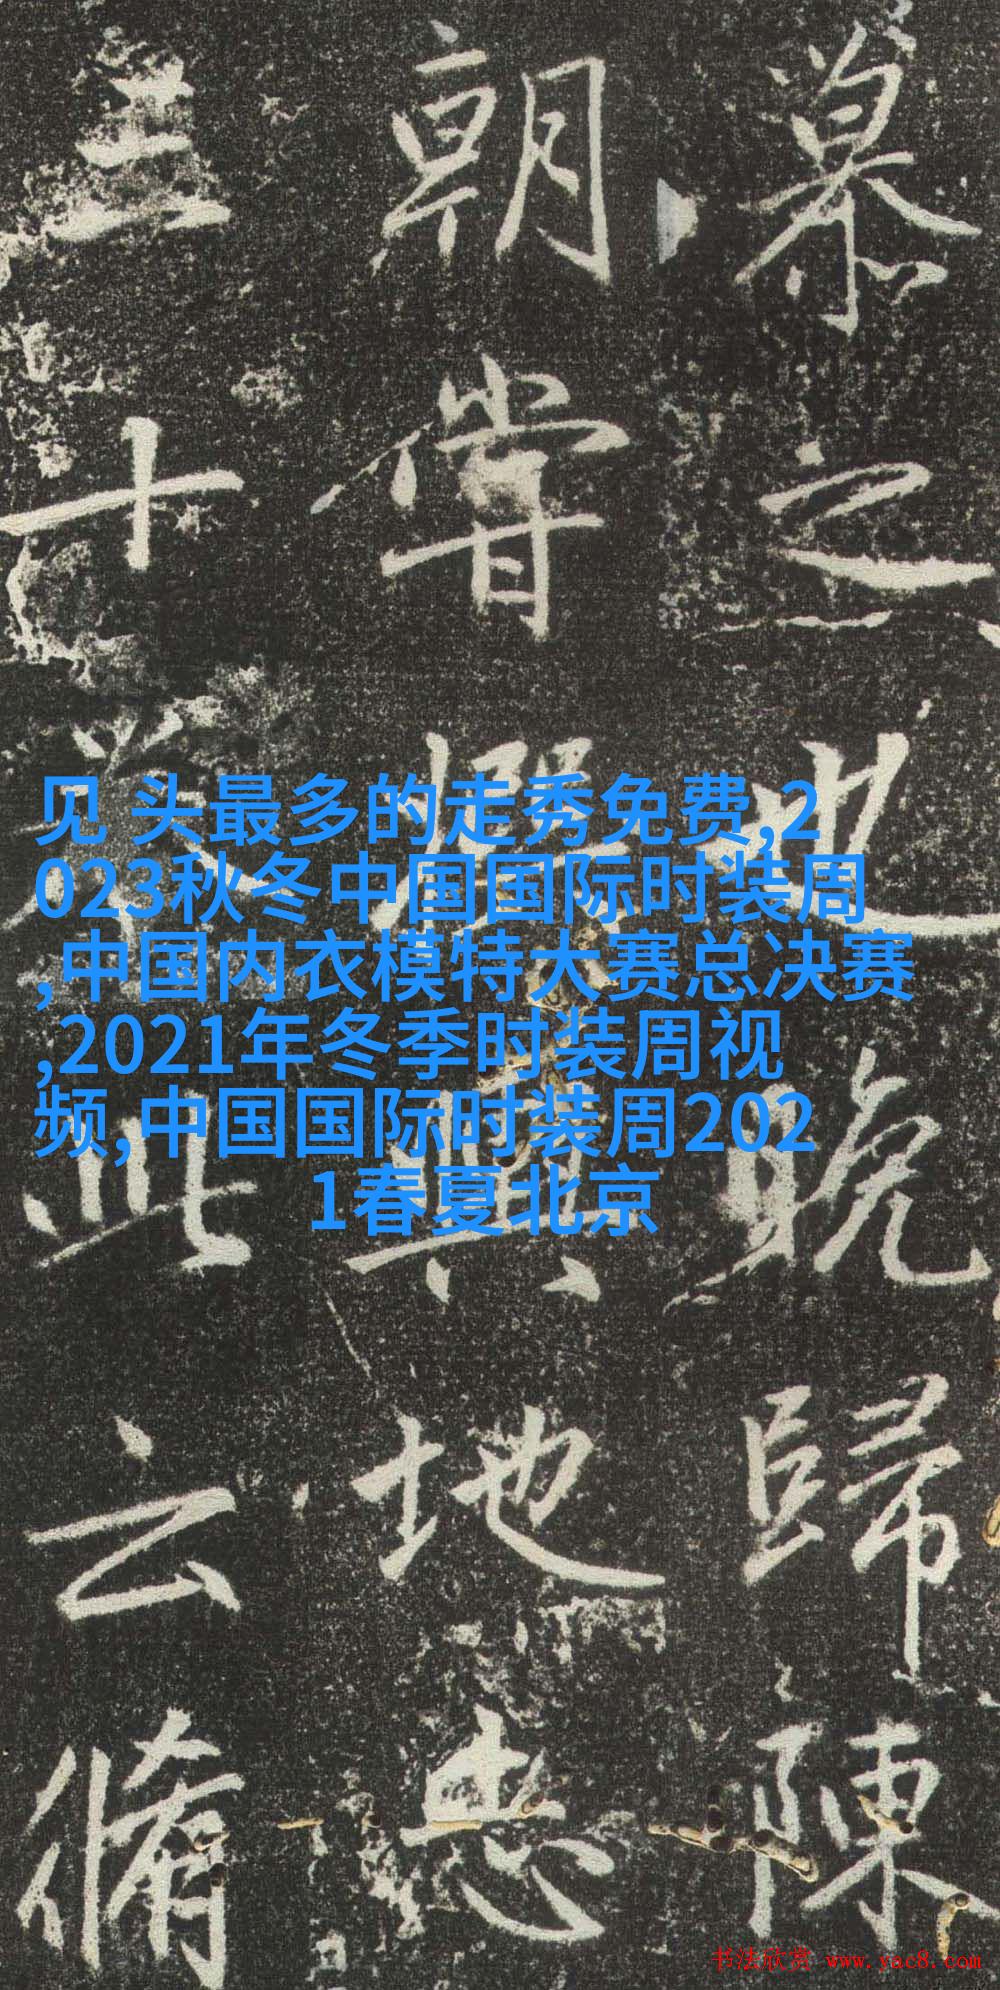 见 头最多的走秀免费,2
023秋冬中国国际时装周
,中国内衣模特大赛总决赛
,2021年冬季时装周视
频,中国国际时装周202
1春夏北京
之也晚歸陳
朝嘗興地
十此云脩
书法欣赏 www.yac8.com